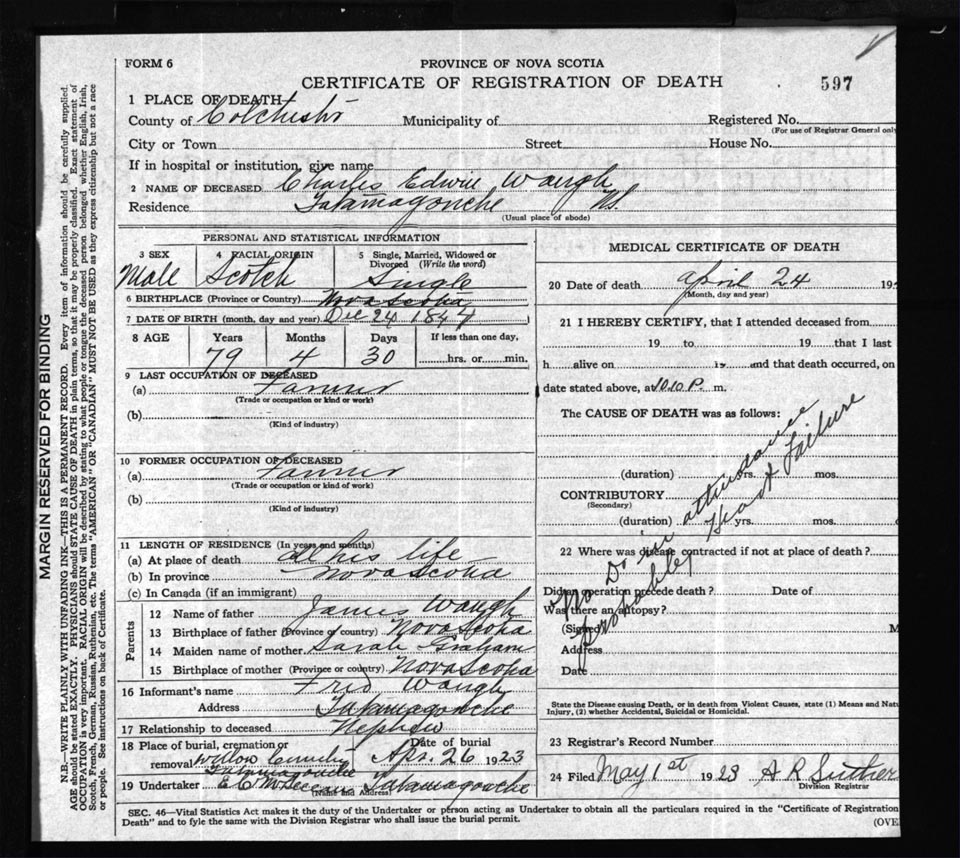 FORM 6
PROVINCE OF NOVA SCOTIA
CERTIFICATE OF REGISTRATION OF DEATH
597
1 PLACE OF DEATH
County of Colchester Municipality of Registered No.
(For use of Registrar General only
City or Town Street House No.
If in hospital or institution, give name
2 NAME OF DECEASED Charles Edwin Waugh
Residence Tatamagouche N.S.
(Usual place of abode)
PERSONAL AND STATISTICAL INFORMATION
3 SEX 4 RACIAL ORIGIN 5 Single, Married, Widowed or
Divorced (Write the word)
Male Scotch Single
6 BIRTHPLACE (Province or Country) Nova Scotia
7 DATE OF BIRTH (month, day and year) Dec 24 1844
8 AGE Years Months Days If less than one day,
79 4 30 hrs. or min.
9 LAST OCCUPATION OF DECEASED
(a) Farmer
(Trade or occupation or kind or work)
(b)
(Kind of industry)
10 FORMER OCCUPATION OF DECEASED
(a) Farmer
(Trade or occupation or kind or work)
(b)
(Kind of industry)
11 LENGTH OF RESIDENCE (In years and months)
(a) At place of death all his life
(b) In province Nova Scotia
(c) In Canada (if an immigrant)
Parents
12 Name of father James Waugh
13 Birthplace of father (Province or country) Nova Scotia
14 Maiden name of mother Sarah Graham
15 Birthplace of mother (Province or country) Nova Scotia
16 Informant's name Fred Waugh
Address Tatamagouche
17 Relationship to deceased Nephew
18 Place of burial, cremation or Date of burial
removal Willow Apr. 26 1923
Tatamagouche
19 Undertaker Tatamagouche
(Name and Address)
MEDICAL CERTIFICATE OF DEATH
20 Date of death April 24 19
(Month, day and year)
21 I HEREBY CERTIFY, that I attended deceased from
19 to 19 that I last
h alive on 19 and that death occurred, on
date stated above, at 10.10 P. m.
The CAUSE OF DEATH was as follows:
No Dr in attendance
Probably Heart Failure
(duration) yrs. mos.
CONTRIBUTORY
(Secondary)
(duration) yrs. mos.
22 Where was disease contracted if not at place of death?
Did an operation precede death? Date of
Was there an autopsy?
(Signed) M
Address
Date
State the Disease causing Death, or in death from Violent Causes, state (1) Means and Natu
Injury, (2) whether Accidental, Suicidal or Homicidal.
23 Registrar's Record Number
24 Filed May 1st 1923 A R Suther
Division Registrar
SEC. 46—Vital Statistics Act makes it the duty of the Undertaker or person acting as Undertaker to obtain all the particulars required in the "Certificate of Registration
Death" and to fyle the same with the Division Registrar who shall issue the burial permit.
(OVE
MARGIN RESERVED FOR BINDING
N.B.—WRITE PLAINLY WITH UNFADING INK—THIS IS A PERMANENT RECORD. Every item of information should be carefully supplied.
AGE should be stated EXACTLY. PHYSICIANS should STATE CAUSE OF DEATH in plain terms, so that it may be properly classified. Exact statement of
OCCUPATION is very important. RACIAL ORIGIN will be described by stating to what people or tongue the deceased person belonged whether English, Irish,
Scotch, French, German, Russian, Ruthenian, etc. The terms "AMERICAN" OR "CANADIAN" MUST NOT BE USED as they express citizenship but not a race
or people. See instructions on back of Certificate.